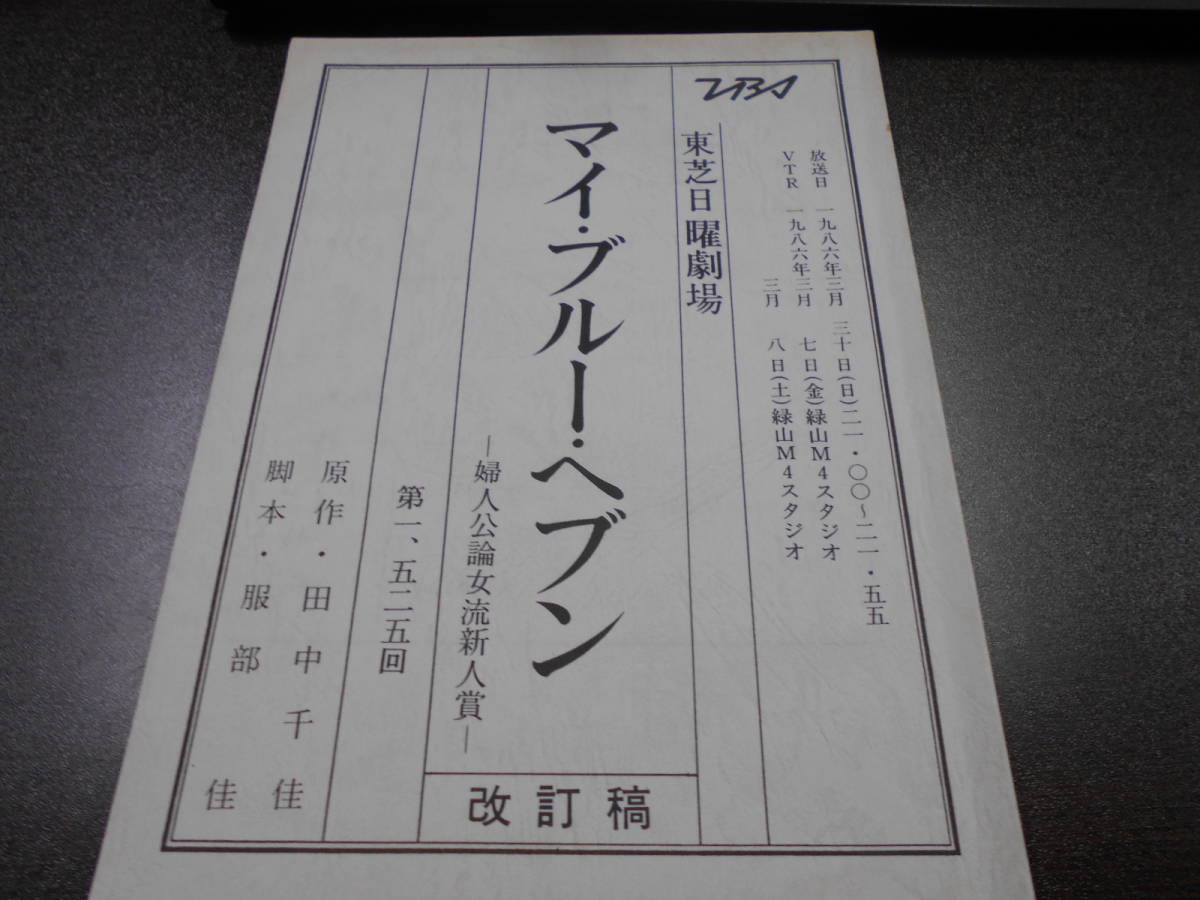 TBS
放送日 一九八六年三月 三十日(日)二一・〇〇~二一・五五
VTR 一九八六年三月 七日(金)緑山M4スタジオ
三月 八日(土)緑山M4スタジオ
東芝日曜劇場
マイ・ブルー・ヘブン
―婦人公論女流新人賞―
改訂稿
第一、五二五回
原作・田中千佳
脚本・服部佳